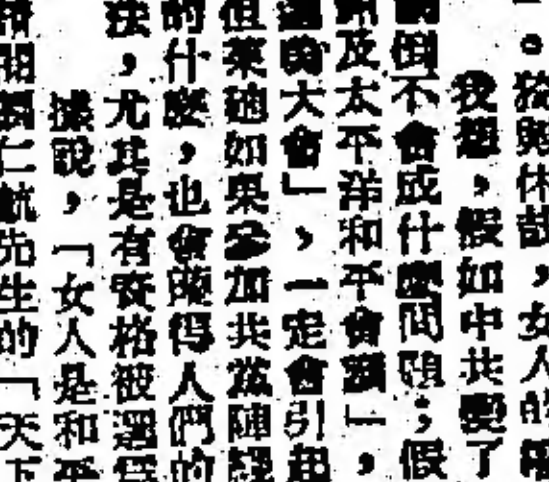 。猗歟休哉，女人的
我想，假如中共變了
倒不會成什麼問題；假
及太平洋和平會議」，
大會」，一定會引起
但萊如果參加共黨陣
的什麼，也會使得人們的
法，尤其是有資格被選爲
據說，「女人是和平
仁航先生的「天下